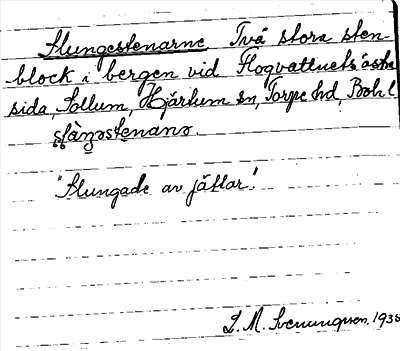 Slungestenarne, Två stora sten-
block i bergen vid Flogvattnets östra
sida, Sollum, Hjärtum sn, Torpe hd, Bohl
"Slungade av jättar."
L. M. Svenungsson. 1938